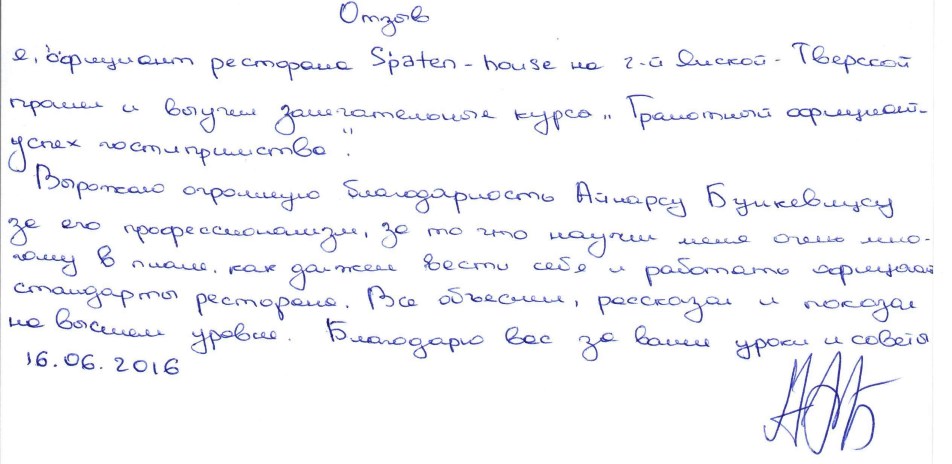 Отзыв
Я, официант ресторана Spaten-house на 2-й Ямской-Тверской
прошел и выучил замечательные курсы „Грамотный официант-
успех гостиприимства".
Выражаю огромную благодарность Айнарсу Бункевицусу
за его профессионализм, за то что научил меня очень мно-
гому в плане, как должен вести себя и работать официант
стандарты ресторана. Все объеснил, рассказал и показал
на высшем уровне. Благодарю вас за ваши уроки и советы
16.06.2016